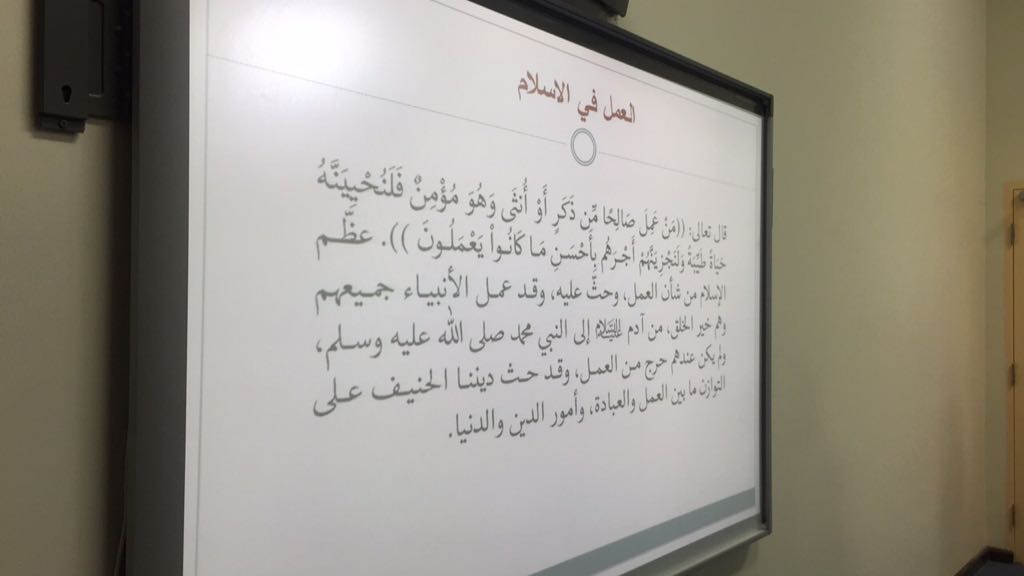 العمل في الاسلام
قال تعالى: ((مَنْ عَمِلَ صَالِحًا مِّن ذَكَرٍ أَوْ أُنثَى وَهُوَ مُؤْمِنٌ فَلَنُحْيِيَنَّهُ
حَيَاةً طَيِّبَةً وَلَنَجْزِيَنَّهُمْ أَجْرَهُم بِأَحْسَنِ مَا كَانُواْ يَعْمَلُونَ )). عظَّم
الإسلام من شأن العمل، وحثَّ عليه، وقد عمل الأنبياء جميعهم
وهم خير الخلق، من آدم عليه السلام إلى النبي محمد صلى الله عليه وسلم،
ولم يكن عندهم حرج من العمل، وقد حث ديننا الحنيف على
التوازن ما بين العمل والعبادة، وأمور الدين والدنيا.